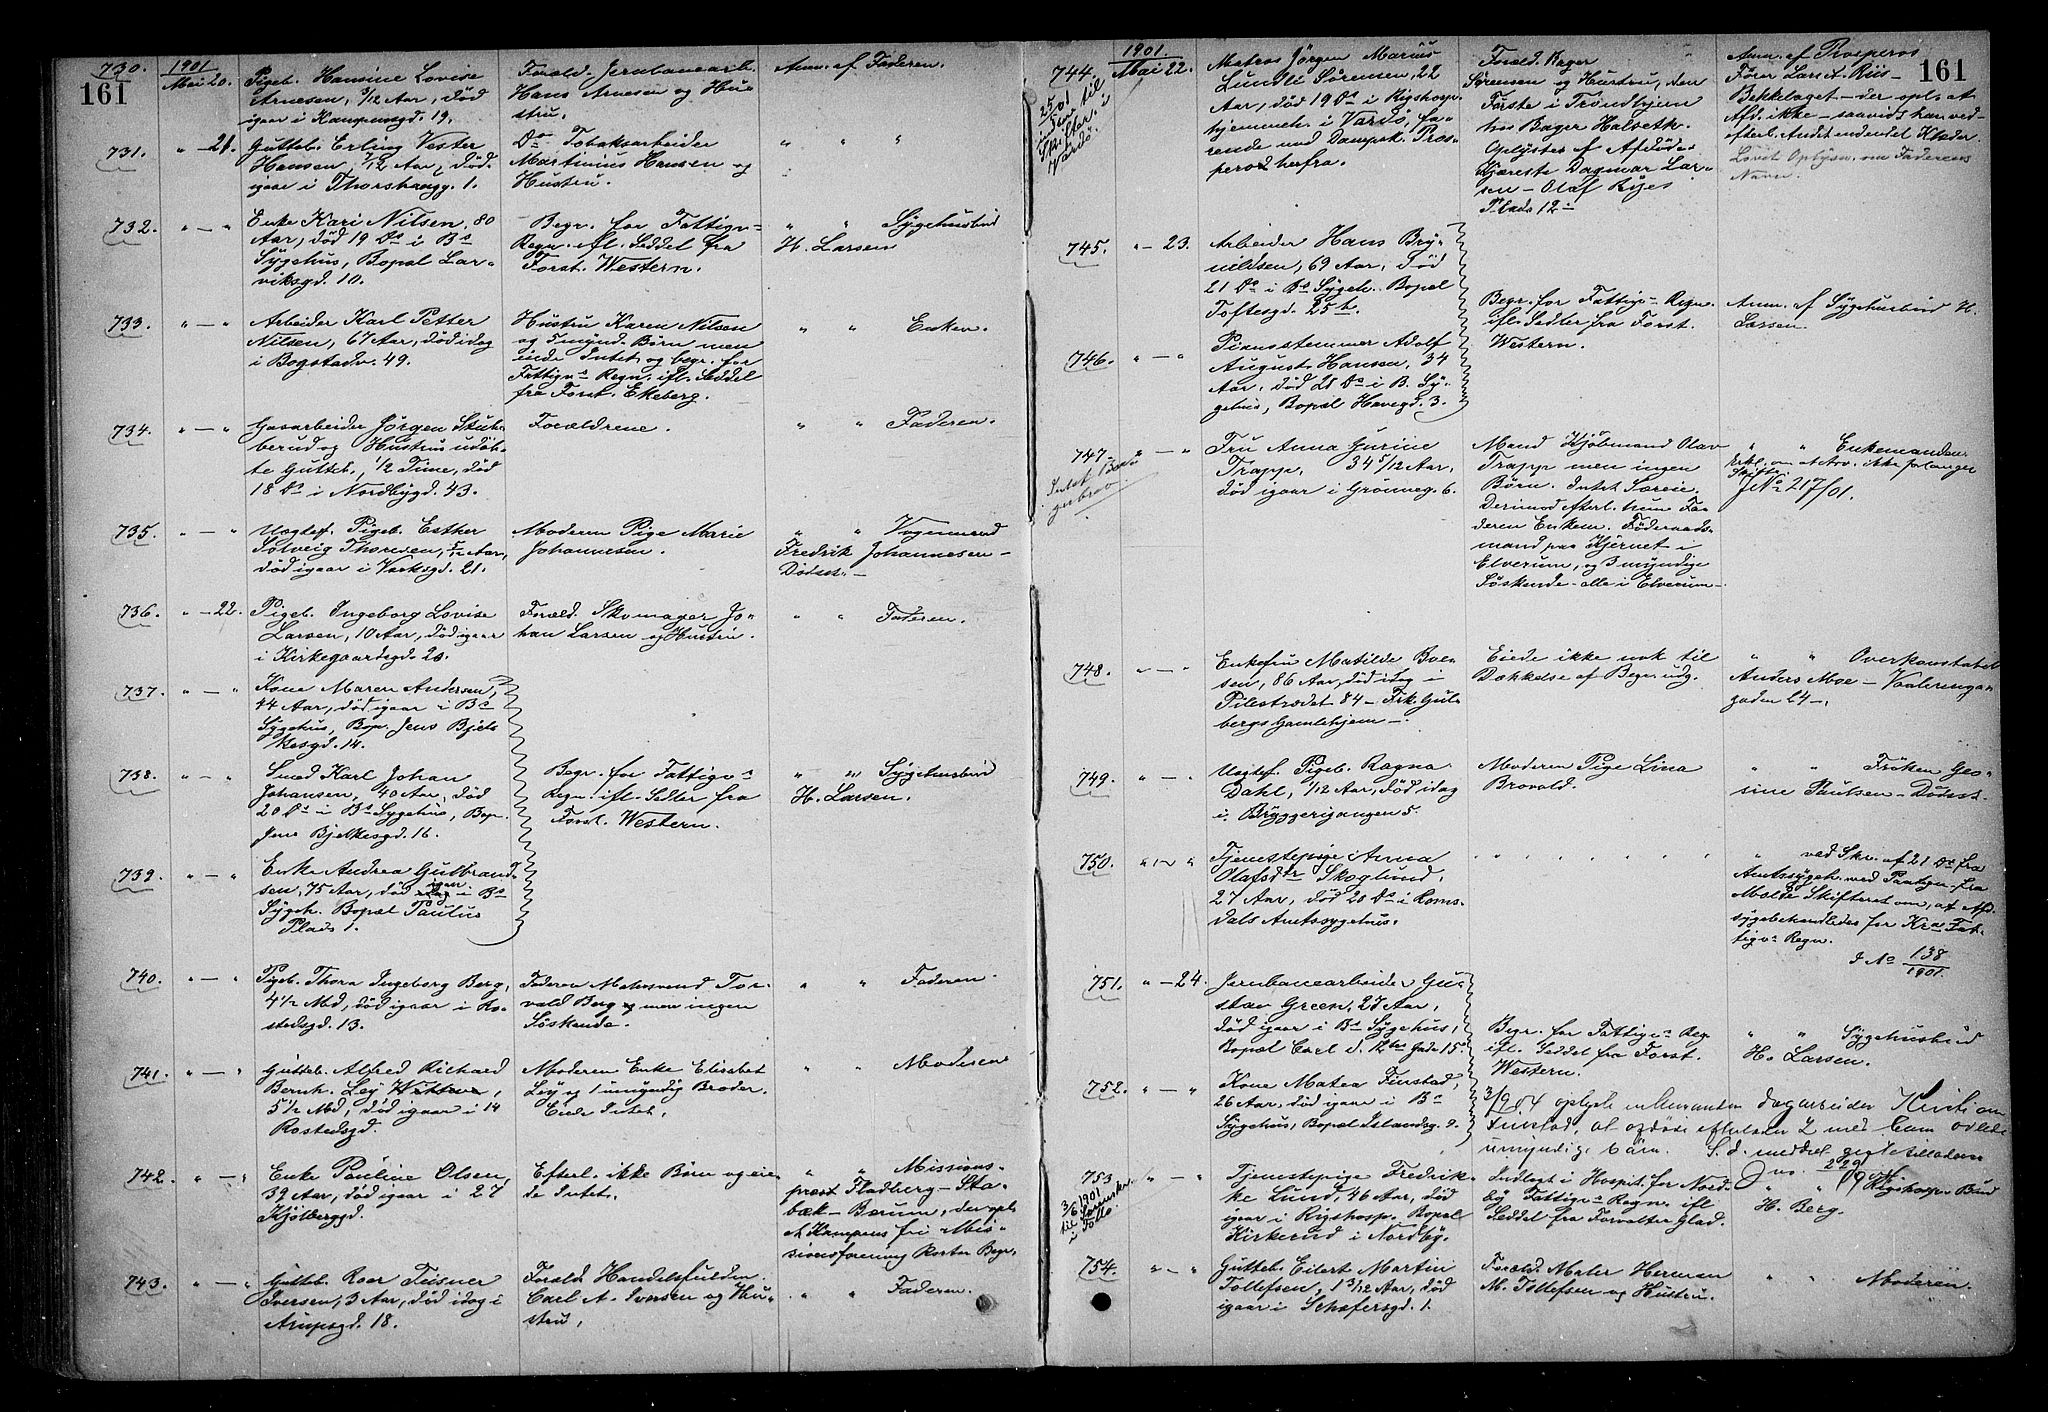 161
1901
730. Mai 20. Pigeb. Hansine Lovise
Arnesen, 3/12 Aar, död
igaar i Kampensgd. 19.
Foræld. Jernbanearb.
Hans Arnesen og Hu-
stru.
Anm. af Faderen.
731. " - 21. Gutteb. Erling Vester
Hansen, 7/12 Aar, död
igaar i Thorshaugg. 1.
Do Tobaksarbeider
Martinius Hansen og
Hustru.
" " "
732. " - " Enke Kari Nilsen, 80
Aar, död 19 Ds i Bs
Sygehus, Bopæl Lar-
viksgd. 10.
Begr. for Fattigv-
Regn. ifl. Seddel fra
Forst. Western.
" " Sygehusbud
H. Larsen
733. " - " Arbeider Karl Petter
Nilsen, 67 Aar, död idag
i Bogstadv. 49.
Hustru Karen Nilsen
og 5 mynd. Börn men
eiede Intet og begr. for
Fattigvs Regn. ifl. Seddel
fra Forst. Ekeberg.
" " Enken.
734. " - " Gasarbeider Jörgen Stub-
berud og Hustrus udöb-
te Gutteb., 1/2 Time, död
18 Ds i Nordbygd. 43.
Forældrene.
" " Faderen.
735. " - " Uægtef. Pigeb. Esther
Solveig Thoresen, 5/12 Aar,
död igaar i Verksgd. 21.
Moderen Pige Marie
Johannesen.
" " Vognmand
Fredrik Johannesen -
Dödsst. -
736. " - 22. Pigeb. Ingeborg Lovise
Larsen, 10 Aar, död igaar
i Kirkegaardsgd. 20.
Foræld. Skomager Jo-
han Larsen og Hustru.
" " Faderen.
737. " - " Kone Maren Andersen,
44 Aar, död igaar i Bs
Sygehus, Bop. Jens Bjel-
kesgd. 14.
738. " - " Smed Karl Johan
Johansen, 40 Aar, död
20 Ds i Bs Sygehus, Bop.
Jens Bjelkesgd. 16.
Begr. for Fattigvs
Regn. ifl. Sedler fra
Forst. Western.
" " Sygehusbud
H. Larsen.
739. " - " Enke Andrea Gulbrand-
sen, 75 Aar, död igaar i Bs
Sygeh. Bopæl Paulus
Plads 1.
740. " - " Pigeb. Thora Ingeborg Berg,
4 1/2 Md, död igaar i Ro-
stedsgd. 13.
Faderen Matrosvend Tor-
vald Berg og men ingen
Söskende.
" " Faderen.
741. " - " Gutteb. Alfred Richard
Bernh. Ley Wittene,
5 1/2 Md, död igaar i 14
Rostedsgd.
Moderen Enke Elisabet
Ley og 1 umyndig Broder.
Eiede Intet.
" " Moderen
742. " - " Enke Pauline Olsen,
39 Aar, död igaar i 27
Kjölberggd.
Efterl. ikke Börn og eie-
de Intet.
" " Missions-
præst Fladberg - Sta-
bæk - Bærum, der opl.
at Kampens fri Mis-
sionsforening koster Begr.
743. " - " Gutteb. Roar Teisner
Iversen, 3 Aar, död idag i
Arupsgd. 18.
Foræld. Handelsfuldm.
Carl A. Iversen og Hu-
stru.
" " Faderen.
161
1901.
744. Mai 22. Matros Jörgen Marius
Lundli Sörensen, 22
Aar, död 19 Ds i Rigshosp.
hjemmeh. i Vardö, fa-
rende med Dampsk. Pros-
pero herfra.
Foræld. Bager
Sörensen og Hustru, den
Förste i Trondhjem
hos Bager Halseth.
Oplyses af Afdödes
Kjæreste Dagmar Lar-
sen - Olaf Ryes
Plads 12
Anm. af Prosperos
Förer Lars A. Riis -
Bekkelaget - der opl. at
Afd. ikke - saavidt han ved -
efterl. Andet end endel Klæder
Lovet Oplysn. om Faderens
Navn.
25/5 01
til
Skifter. i
Vardö.
745. " - 23. Arbeider Hans Bry-
nildsen, 69 Aar, död
21 Ds i Bs Sygeh. Bopæl
Toftesgd. 25 b.
Begr. for Fattigvs Regn.
ifl. Sedler fra Forst.
Western.
Anm. af Sygehusbud H.
Larsen.
746. " - " Pianostemmer Adolf
August Hansen, 34
Aar, död 21 Ds i B. Sy-
gehus, Bopæl Havegd. 3.
747. " - " Fru Anna Gurine
Trapp, 34 5/12 Aar,
död igaar i Grönneg. 6.
Mand Kjöbmand Olav
Trapp men ingen
Börn. Intet Særeie.
Derimod efterl. hun Fa-
deren Enkem. Föderaads-
mand paa Kjernet i
Elverum, og 3 myndige
Söskende - alle i Elverum -
" " Enkemanden.
Erkl. om at Arv. ikke forlanger
Skifte.
J No 217/01.
748. " - " Enkefru Matilde Boe-
sen, 86 Aar, död idag i
Pilestrædet 84 - Frk. Gul-
bergs Gamlehjem -
Eiede ikke nok til
Dækkelse af Begr. udg.
" " Overkonstabel
Anders Moe - Vaalerenga-
gaden 24 -.
749. " - " Uægtef. Pigeb. Ragna
Dahl, 1/12 Aar, död idag
i Bryggerigangen 5.
Moderen Pige Lina
Brovald.
" " Fröken Ges-
sine Paulsen - Dödsst.
750. " - " Tjenestepige Anna
Olafsdtr Skoglund,
27 Aar, död 20 Ds i Roms-
dals Amtssygehus.
" " " " " "
" ved Skr. af 21 Ds fra
Amtssygeh. med Paategn. fra
Molde Skifteret om, at Afd.
sygebehandledes for Kra Fat-
tigvs Regn.
J No 138/1901.
751. " - 24. Jernbanearbeider Gu-
stav Green, 27 Aar,
död igaar i Bs Sygehus,
Bopæl Carl d. 12tes Gade 15
Begr. for Fattigvs Reg.
ifl. Seddel fra Forst.
Western.
" " Sygehusbud
H. Larsen.
752. " - " Kone Matea Finstad,
26 Aar, död igaar i Bs
Sygehus, Bopæl Islandsg. 9.
3/9 04 oplyste enkemanden dagarbeider Kristian
Finstad, at afdöde efterlod 2 med ham avlede
umyndige börn. S. d. meddelt giftetilladelse
Jno. 229/04
753 " - " Tjenestepige Fredrik-
ke Lund, 46 Aar, död
igaar i Rigshosp. Bopæl
Kirkerud i Nordby.
Indlagt i Hospit. for Nord-
by Fattigvs Regn. ifl.
Seddel fra Forvalter Glad.
" " Rigshosp. Bud
H. Berg.
3/6 1901
til Sorenskr.
i Follo
754. " - " Gutteb. Eilert Martin
Tollefsen, 1 3/12 Aar, död
igaar i Schæfersgd. 1.
Foræld. Maler Herman
M. Tollefsen og Hustru.
" " Moderen.